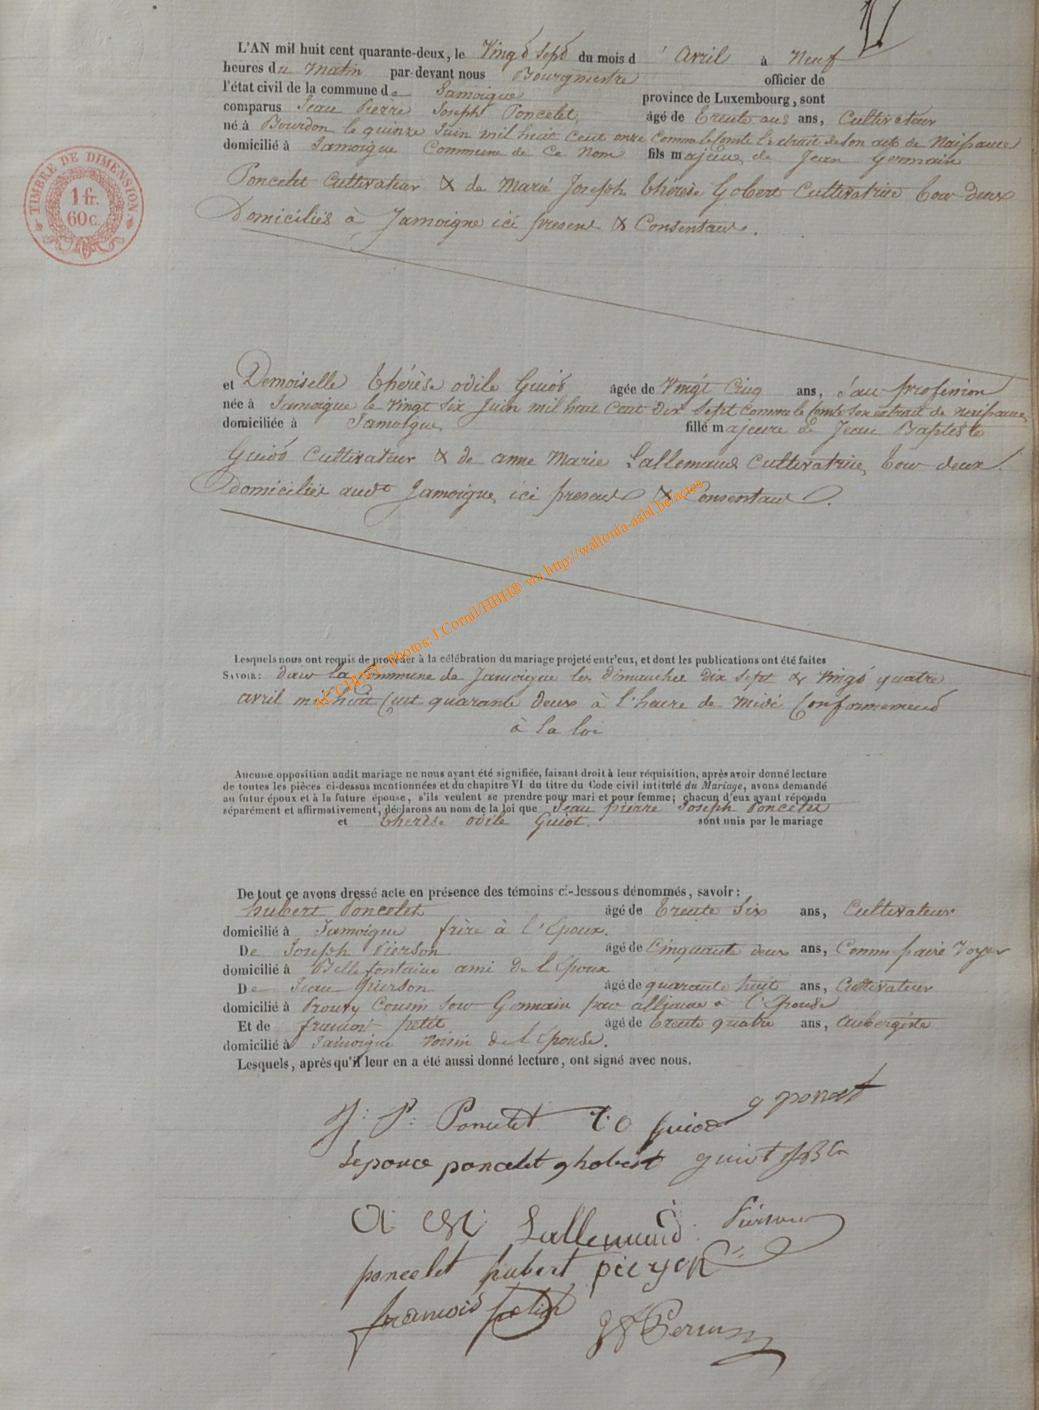 L'AN mil huit cent quarante-deux, le Vingt Sept du mois d'Avril à Neuf
heures du Matin par-devant nous Bourgmestre officier de
l'état civil de la commune de Jamoigne province de Luxembourg, sont
comparus Jean Pierre Joseph Poncelet, âgé de trente ans ans, Cultivateur
né à Bourdon le quinze Juin mil huit Cent onze Comme le Conste l'extrait de Son acte de Naissance
domicilié à Jamoigne Commune de Ce Nom fils majeur, de Jean Germain
Poncelet Cultivateur & de Marie Joseph thérèse Gobert Cultivatrice tou deux
Domiciliés à Jamoigne ici present & Consentant.
et Demoiselle thérèse odile Guiot âgée de Vingt Cinq ans, San profession
née à Jamoigne le vingt Six Juin mil huit Cent Dix Sept comme le Conste Son extrait de naissance
domiciliée à Jamoigne, fille majeure de Jean Baptiste
Guiot Cultivateur & de anne Marie Lallemand Cultivatrice, tou deux
Domiciliés audt Jamoigne, ici present & Consentant.
Lesquels nous ont requis de procéder à la célébration du mariage projeté entr'eux, et dont les publications ont été faites
SAVOIR: dans la Commune de Jamoigne les dimanches dix Sept & Vingt quatre
avril mil huit Cent quarante Deux à l'heure de Midi Conformement
à la loi
Aucune opposition audit mariage ne nous ayant été signifiée, faisant droit à leur réquisition, après avoir donné lecture
de toutes les pièces ci-dessus mentionnées et du chapitre VI du titre du Code civil intitulé du Mariage, avons demandé
au futur époux et à la future épouse, s'ils veulent se prendre pour mari et pour femme; chacun d'eux ayant répondu
séparément et affirmativement, déclarons au nom de la loi que Jean pierre Joseph Poncelet
et thérèse odile Guiot. sont unis par le mariage
De tout ce avons dressé acte en présence des témoins ci-dessous dénommés, savoir:
hubert Poncelet âgé de trente Six ans, Cultivateur
domicilié à Jamoigne frère à l'Epoux.
De Joseph Pierson âgé de Cinquante deux ans, Commissaire Voyer
domicilié à Bellefontaine ami de l'Epoux
De Jean Pierson âgé de quarante huit ans, Cultivateur
domicilié à Prouvy Cousin Sou Germain par alliance à l'Epouse
Et de francois petit âgé de trente quatre ans, aubergiste
domicilié à Jamoigne Voisin de l'Epouse.
Lesquels, après qu'il leur en a été aussi donné lecture, ont signé avec nous.
J: P: Poncelet T O Guiot g poncelet
Lepouce poncelet ghobert guiot
A M Lallemand. Pierson
poncelet hubert pierson
francois petit
TIMBRE DE DIMENSION.
1 fr.
60 c.
Photos: J.Cornil/HBH® via http://wallonia-asbl.be/actes